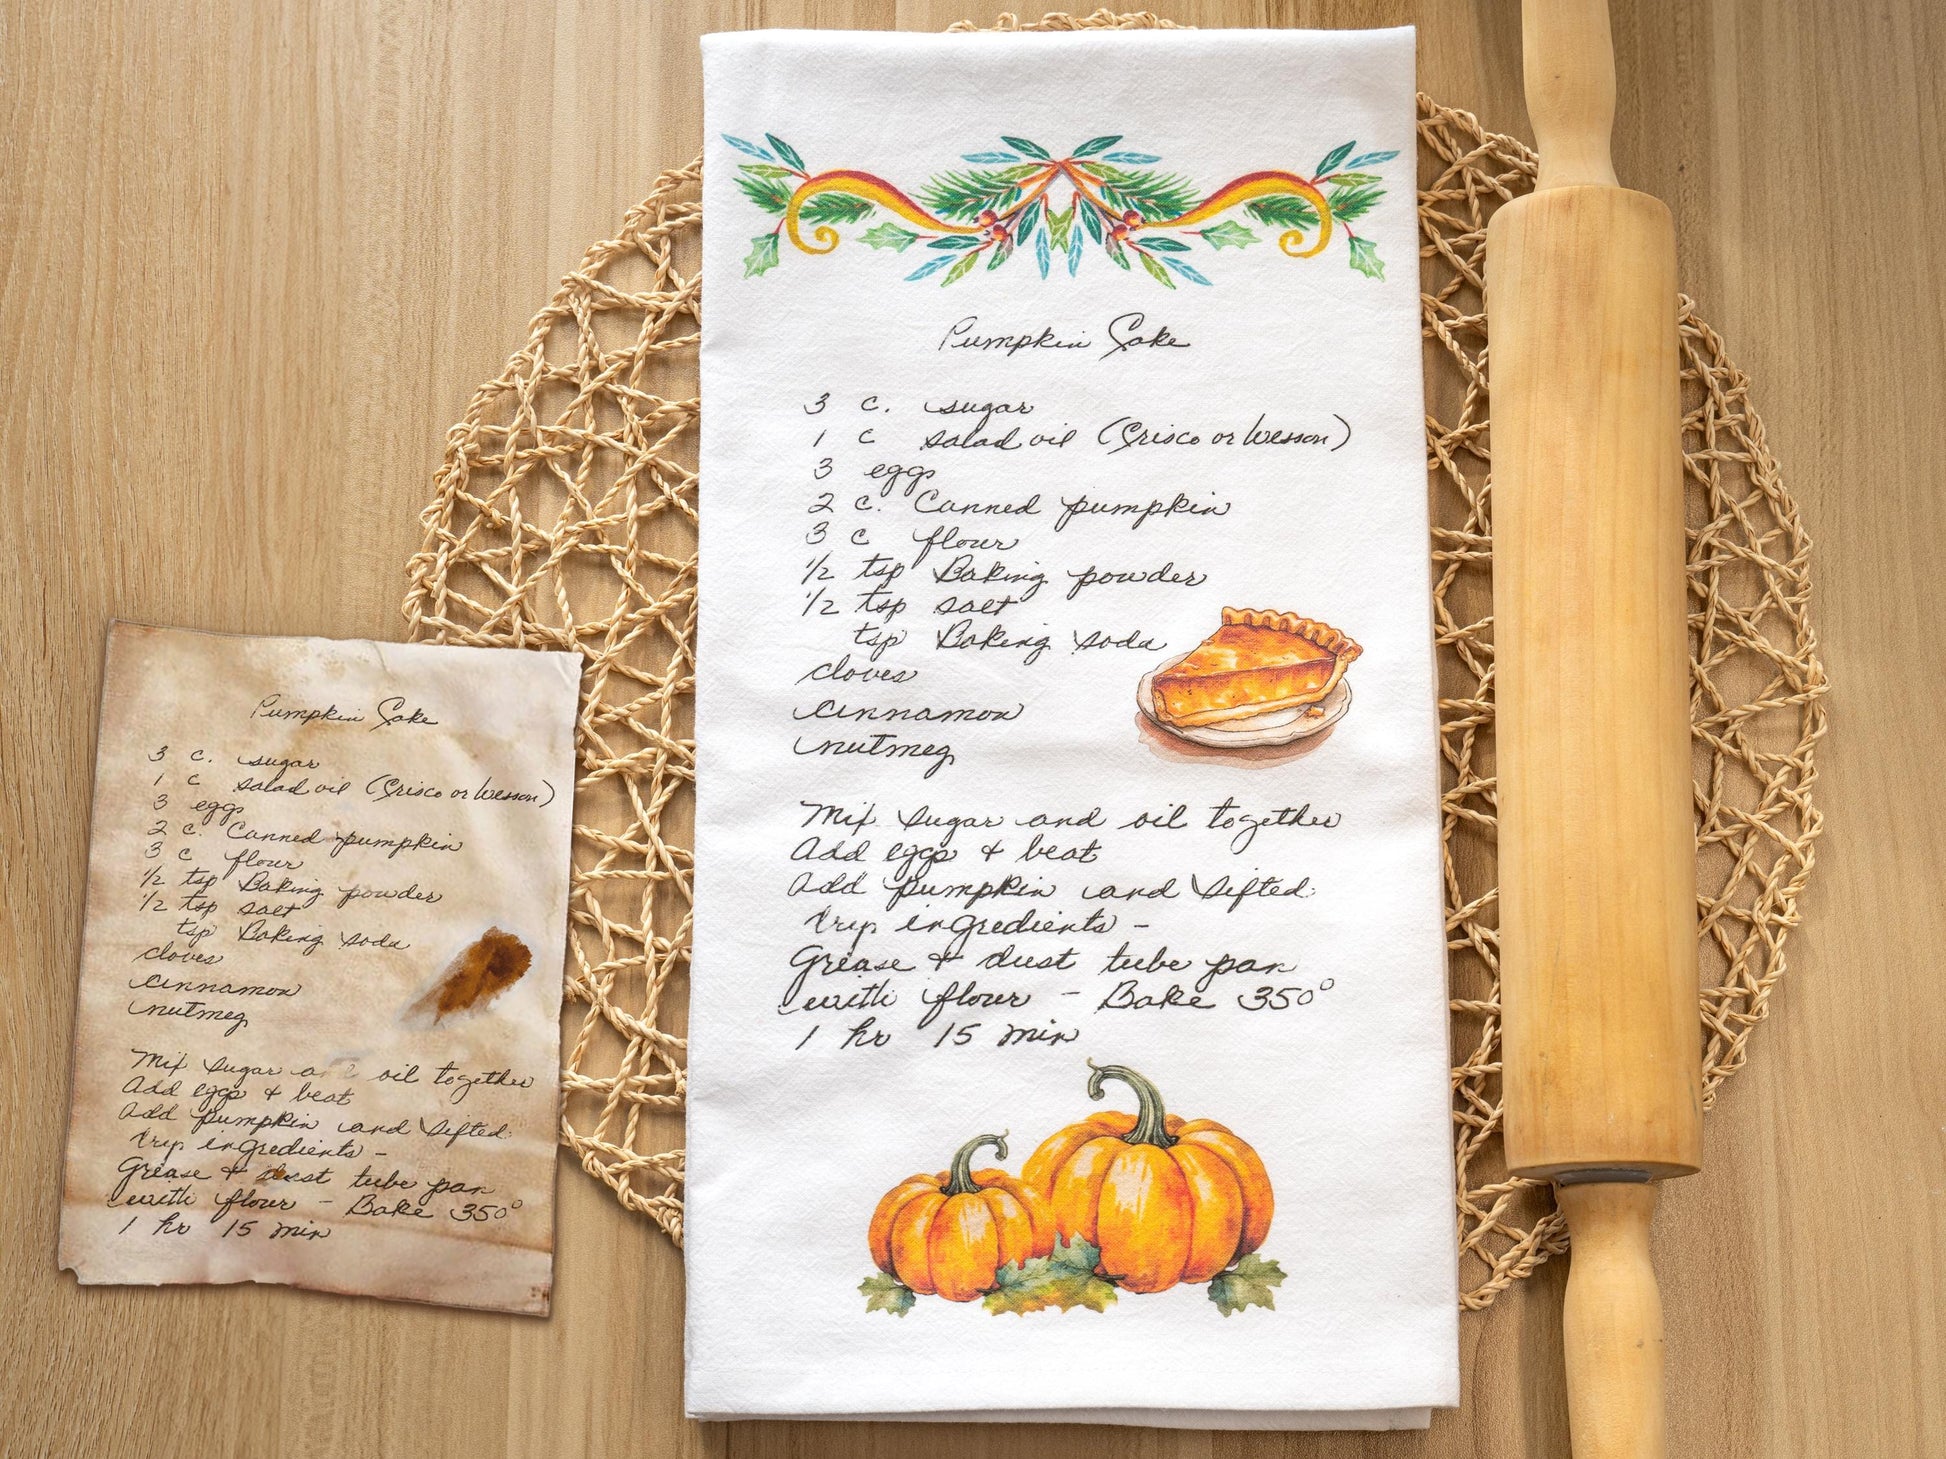 Pumpkin Cake
3 c. sugar
1 c salad oil (Crisco or Wesson)
3 eggs
2 c. Canned pumpkin
3 c flour
1/2 tsp Baking powder
1/2 tsp salt
tsp Baking soda
cloves
cinnamon
nutmeg
Mix sugar and oil together
Add eggs & beat
Add pumpkin and sifted
dry ingredients -
Grease & dust tube pan
with flour - Bake 350°
1 hr 15 min
Pumpkin Cake
3 c. sugar
1 c salad oil (Crisco or Wesson)
3 eggs
2 c. Canned pumpkin
3 c flour
1/2 tsp Baking powder
1/2 tsp salt
tsp Baking soda
cloves
cinnamon
nutmeg
Mix sugar oil together
Add eggs & beat
Add pumpkin and sifted
dry ingredients -
Grease & dust tube pan
with flour - Bake 350°
1 hr 15 min